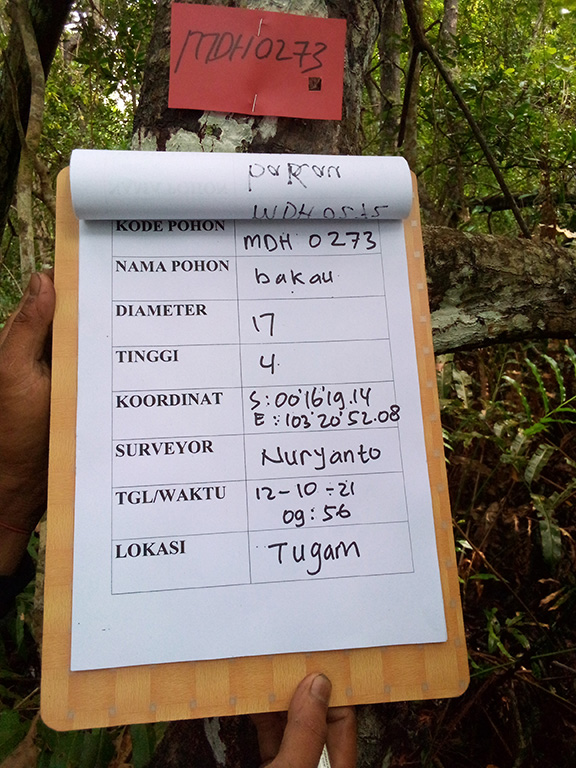 MDH0273
bakau
KODE POHON MDH 0273
NAMA POHON bakau
DIAMETER 17
TINGGI 4
KOORDINAT S : 00'16'19.14
E : 103'20'52.08
SURVEYOR Nuryanto
TGL/WAKTU 12-10-21
09:56
LOKASI Tugam